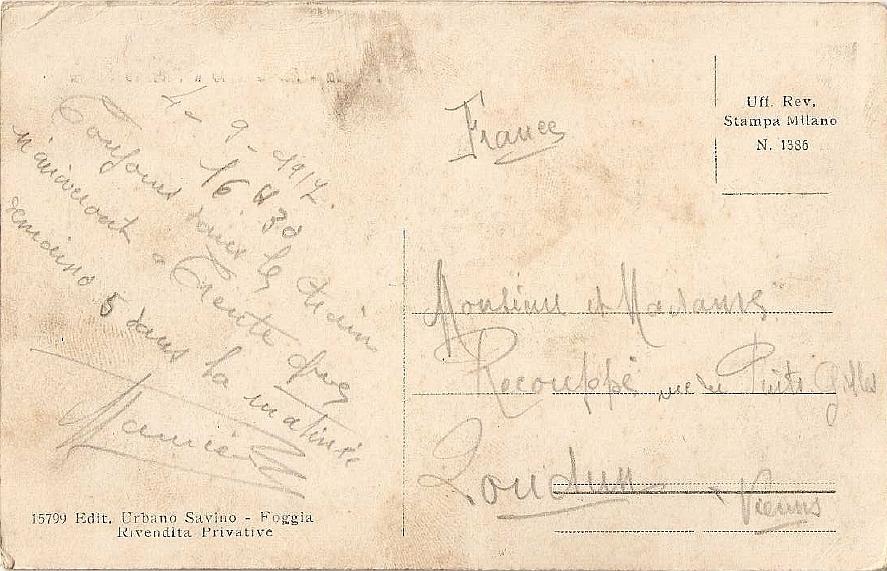 4 - 9 - 1917.
16 H 30
Toujours dans les train
n'arriveront a Trente que
demain 5 dans la matinée
Maurice
15799 Edit. Urbano Savino - Foggia
Rivendita Privative
France
Uff. Rev.
Stampa Milano
N. 1386
Monsieur et Madame
Recouppé rue du Puits Gilles
Loudun
Vienne